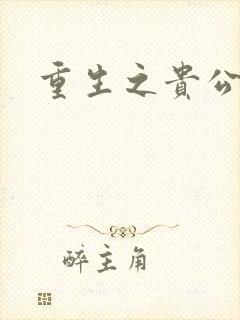 重生之貴公
醉主角